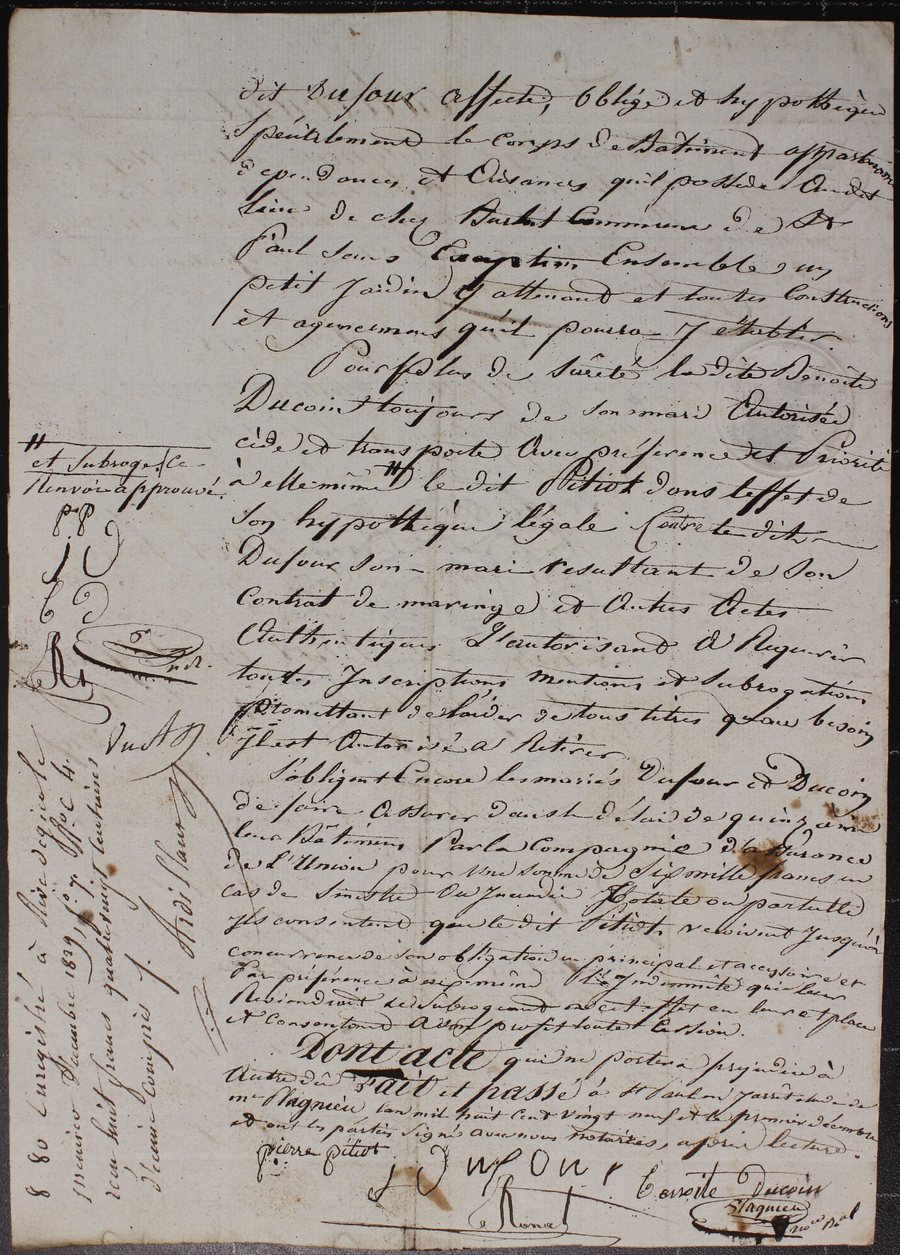 dit Dufour affecte, oblige et hypothèque
spécialement le corps de Batiment appartenances
dependances et aisances qu'il possede audit
lieu de chez Commune de St
Paul sans Exception Ensemble un
petit Jardin y attenant et toutes Constructions
et agencemens qu'il pourra y établir.
Pour plus de sûreté la dite Benoite
Ducoin toujours de son mari Autorisée
cède et transporte Avec préférence et Priorité
à elle même # le dit Pitiot dans l'effet de
son hypothèque légale Contre le dit
Dufour son mari resultant de son
contrat de mariage et autres Actes
Authentiques L'autorisant a Requerir
toutes Inscriptions mentions et subrogations
promettant de l'aider de tous titres qu'au besoin
Il est Autorisé a Retirer.
S'obligent Encore les mariés Dufour et Ducoin
de faire assurer dans le délai de quinzaine
leur Bâtiment Par la Compagnie d'assurance
de L'Union pour une somme de Six mille francs en
cas de Sinistre ou Incendie Totale ou partielle
Ils consentent que le dit Pitiot recoivent Jusqu'à
concurrence de son obligation en principal et accessoire et
Par préférence à eux même L'Indemnité qui leur
Reviendroit le subrogeant à cet effet en leur et place
et Consentant a son profit toute Cession.
Dont acte qui ne portera prejudice à
Autre dû Fait et passé à St Paul en Jarrêt étude de
me Flagnieu l'an mil huit cent vingt neuf et le premier décembre
et ont les parties signé avec nous notaires, après lecture.
pierre pitiot
Dufour
Benoite Ducoin
Ronat
Flagnieu
# et subroge. Ce
Renvoi approuvé.
p. p
J D
B d
R
Enregistré à Rive de gier le
Decembre 1829, fo 7 Vo C 4.
reçu huit francs quatre vingt centimes
décime compris /. Ardillaux